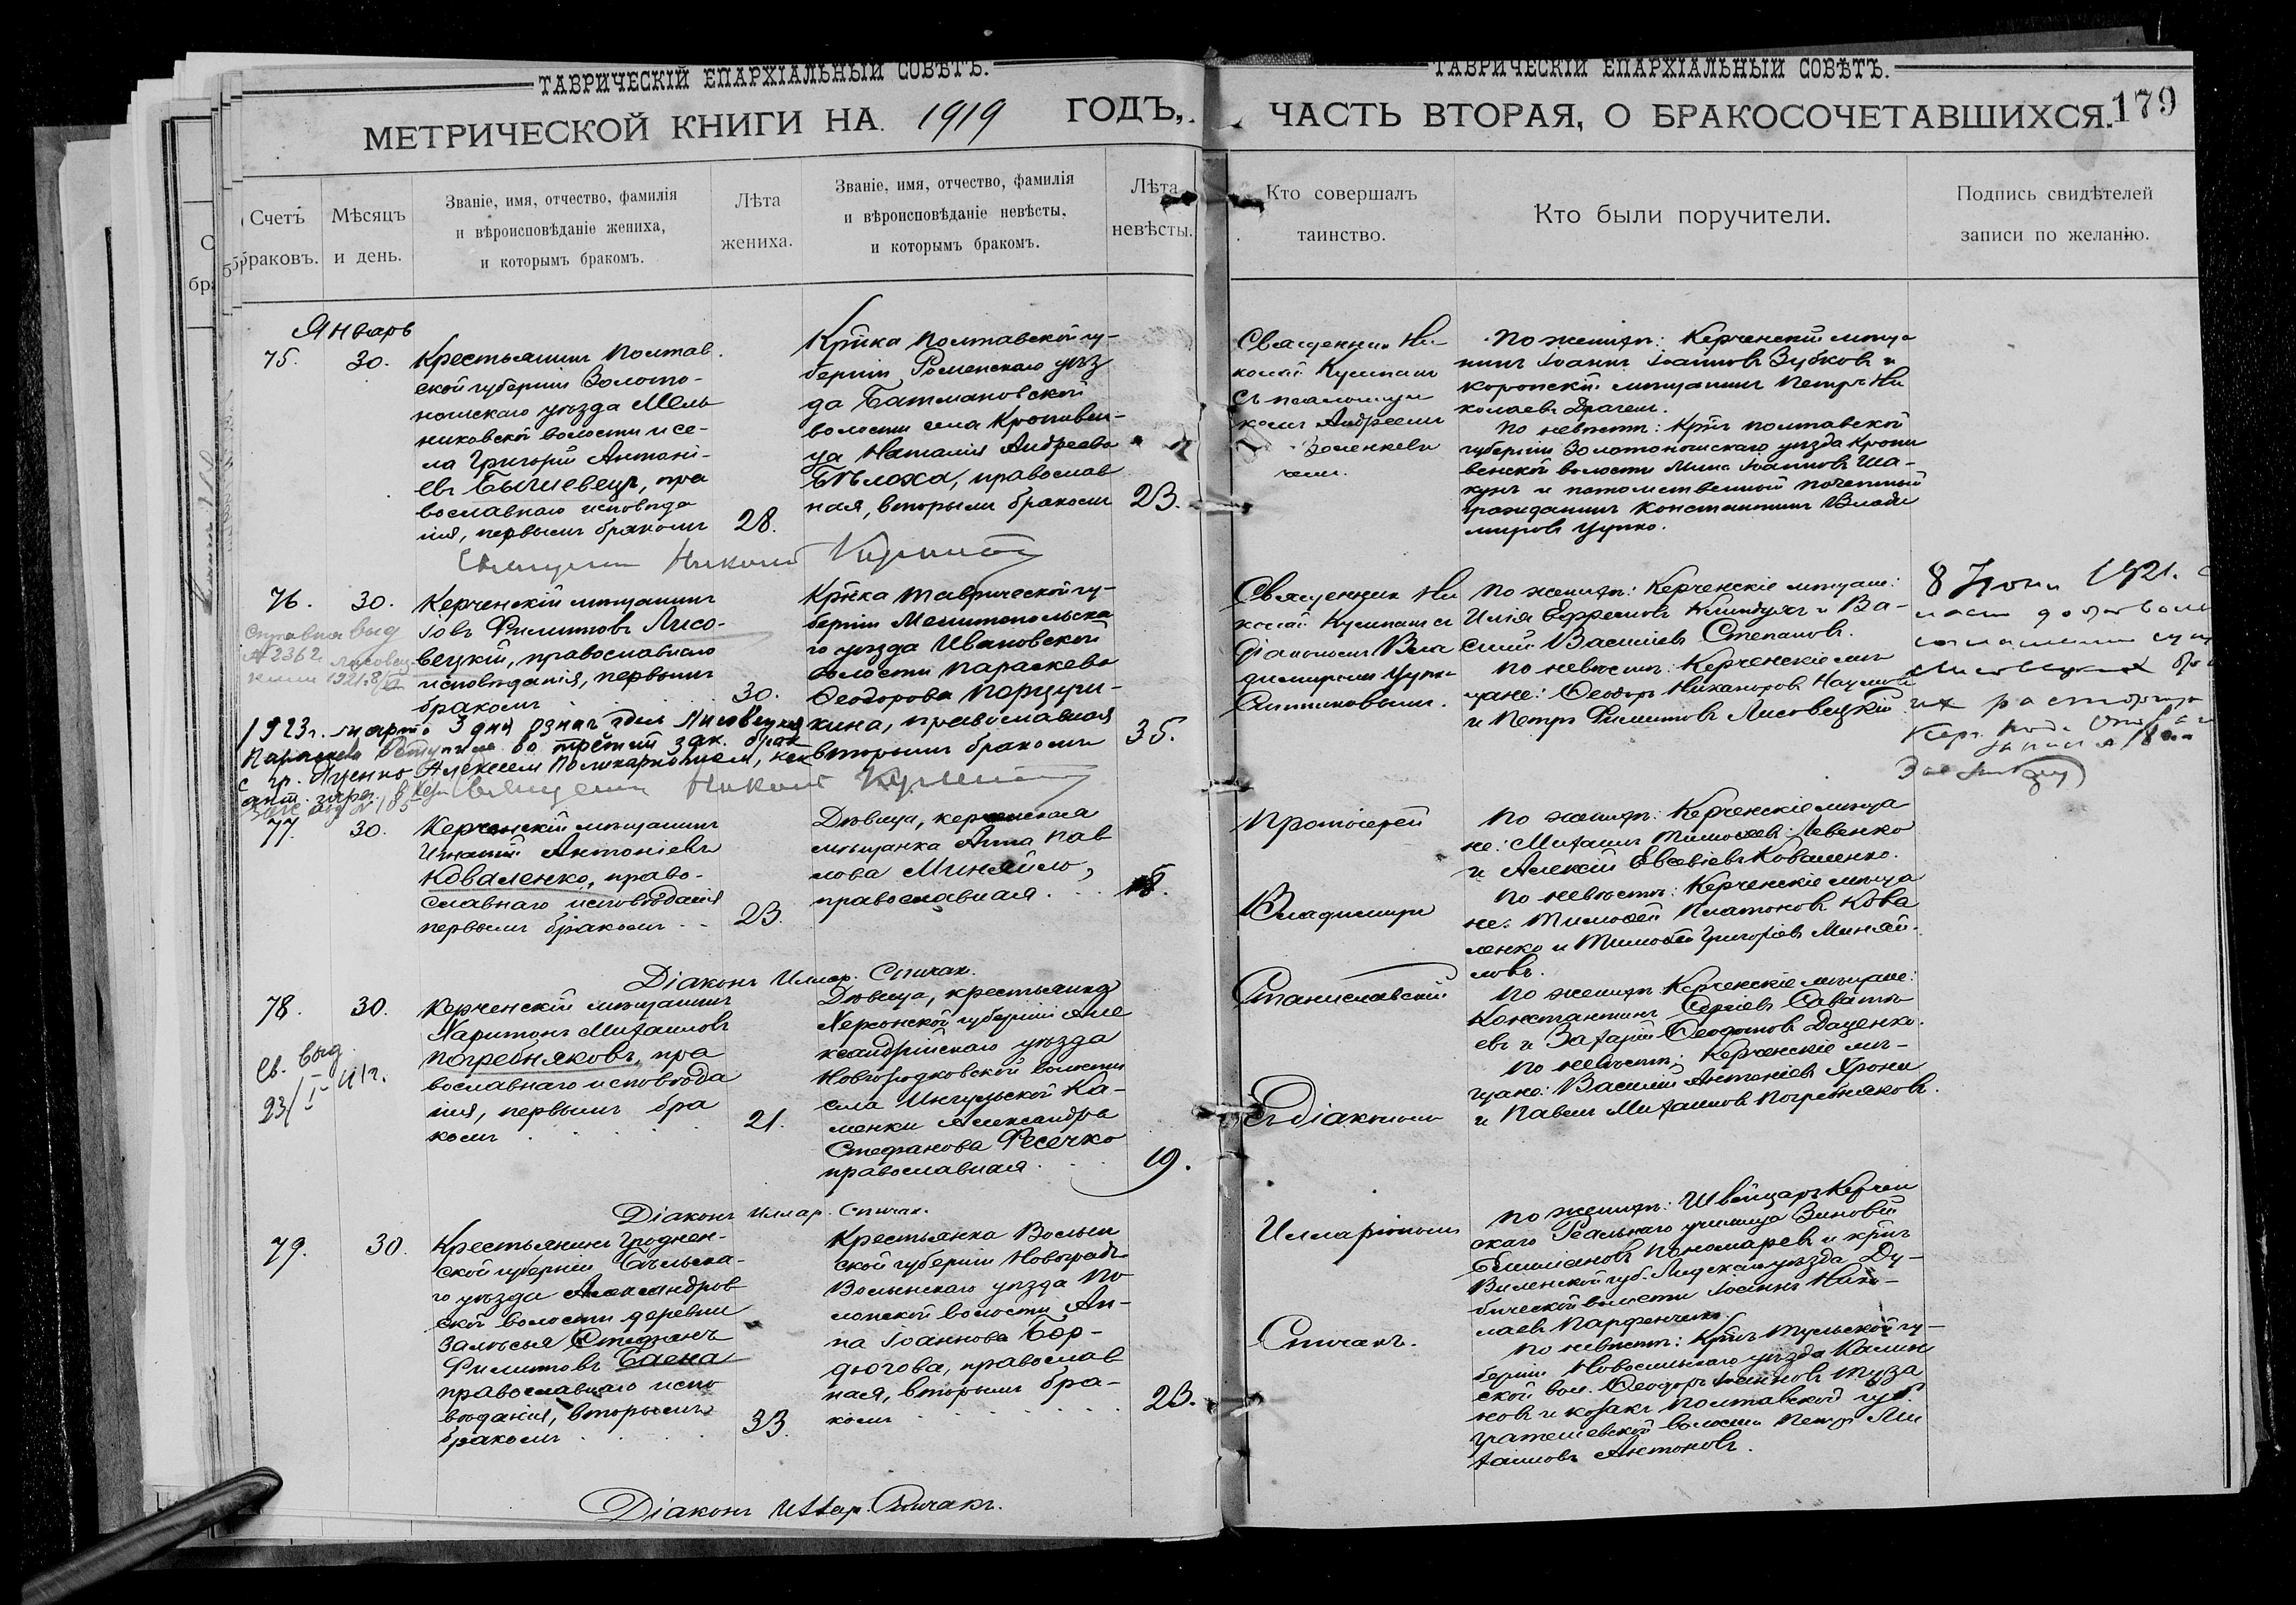 ТАВРИЧЕСКІЙ ЕПАРХІАЛЬНЫЙ СОВѢТЪ.
МЕТРИЧЕСКОЙ КНИГИ НА 1919 ГОДЪ,
Счетъ браковъ.
Мѣсяцъ и день.
Званіе, имя, отчество, фамилія
и вѣроисповѣданіе жениха,
и которымъ бракомъ.
Лѣта жениха.
Званіе, имя, отчество, фамилія
и вѣроисповѣданіе невѣсты,
и которымъ бракомъ.
Лѣта невѣсты.
Январь
75. 30.
Крестьянинъ Полтав
ской губерніи Золото-
ношскаго уѣзда Мель
никовской волости и се-
ла Григорій Антоні-
евъ Бычевецъ, пра
вославнаго исповѣда
нія, первымъ бракомъ
28.
Кр̃нка Полтавской гу-
берніи Роменскаго уѣз
да Батмановской
волости села Кропивен-
ца Наталія Андреева
Бѣлоха, православ
ная, вторымъ бракомъ
23.
Священникъ Николай
76. 30.
Керченскій мѣщанинъ
Іовъ Филипповъ Лисо-
вецкій, православнаго
исповѣданія, первымъ
бракомъ
30.
Кр̃нка Таврической гу-
берніи Мелитопольска
го уѣзда Ивановской
волости Параскева
Ѳеодорова
кина, православная
вторымъ бракомъ
35.
Справка выд
№ 2362
1921
1923 г. марта 3 дня означ здесь Лисовецкая
Параскева вступила во третий зак. брак
с гр. Яценко Алексеем Поликарповичем,
Священникъ Николай
77. 30.
Керченскій мѣщанинъ
Игнатій Антоніевъ
Коваленко, право-
славнаго исповѣданія
первымъ бракомъ
23.
Дѣвица, керченская
мѣщанка Анна Пав
лова Миняйло,
православная
18.
Діаконъ Иллар. Спичак.
78. 30.
Св. выд.
Керченскій мѣщанинъ
Харитонъ Михаиловъ
Погребняковъ, пра
вославнаго исповѣда
нія, первымъ бра
комъ
21.
Дѣвица, крестьянка
Херсонской губерніи Але
ксандрійскаго уѣзда
Новгородковской волости
села Ингульской Ка-
менки Александра
Стефанова Фесечко
православная
19.
Діаконъ Иллар. Спичак.
79. 30.
Крестьянинъ Гроднен-
ской губерніи Бѣльска-
го уѣзда Александров
ской волости деревни
Залѣсья Стефанъ
Филипповъ Баена
православнаго испо
вѣданія, вторымъ
бракомъ
33.
Крестьянка Волын
ской губерніи Новоградъ
Волынскаго уѣзда По
лонской волости Ан-
на Іоаннова Бор-
дюгова, православ
ная, вторымъ бра-
комъ
23.
Діаконъ Иллар. Спичакъ.
ТАВРИЧЕСКІЙ ЕПАРХІАЛЬНЫЙ СОВѢТЪ.
ЧАСТЬ ВТОРАЯ, О БРАКОСОЧЕТАВШИХСЯ.
179
Кто совершалъ
таинство.
Кто были поручители.
Подпись свидѣтелей
записи по желанію.
Священник Ни-
колай
съ псаломщи
комъ Андреемъ
По женихѣ: Керченскій мѣща
нинъ Іоаннъ Іоанновъ Зубковъ и
коропскій мѣщанинъ Петръ Ни
колаевъ Драгель.
По невѣстѣ: Кр̃нъ Полтавской
губерніи Золотоношскаго уѣзда Кропи
венской волости Мина Іоанновъ Ша-
кунъ и потомственный почетный
гражданинъ Константинъ Влади
міровъ Цупко.
Священник Ни
колай
діакономъ Вла
диміромъ
По женихѣ: Керченскіе мѣщане:
Илія Ефремовъ и Ва-
силій Василіевъ Степановъ.
По невѣстѣ: Керченскіе мѣ
щане: Ѳеодоръ Никаноровъ Наумовъ
и Петръ Филипповъ Лисовецкій
8 1921.
Лисовецких
их расторгнут
Протоіерей
Владиміръ
Станиславскій
съ діакономъ
Илларіономъ
Спичакъ.
По женихѣ: Керченскіе мѣща
не: Михаилъ Тимоѳеевъ Левенко
и Алексій Евсевіевъ Коваленко.
По невѣстѣ: Керченскіе мѣща
не: Тимоѳей Платоновъ Кова
ленко и Тимоѳей Григоріевъ Миняй-
ловъ.
По женихѣ Керченскіе мѣщане:
Константинъ Сергіевъ Савать
евъ и Захарій Ѳеодотовъ Даценко.
По невѣстѣ: Керченскіе мѣ-
щане: Василій Антоніевъ Ярони
и Павелъ Михаиловъ Погребняковъ.
По женихѣ: Швейцаръ Керчен
скаго Реальнаго училища Зиновій
Емиліановъ Пономаревъ и кр̃нъ
Виленской губ. Лидскаго уѣзда Ду-
бической волости Іоаннъ Нико-
лаевъ Парфенчикъ
По невѣстѣ: Кр̃нъ Тульской гу-
берніи Новосильскаго уѣзда
ской вол. Ѳеодоръ Іоанновъ Туза
новъ и козакъ Полтавской губ.
волости Петръ Ми
хаиловъ Антоновъ.